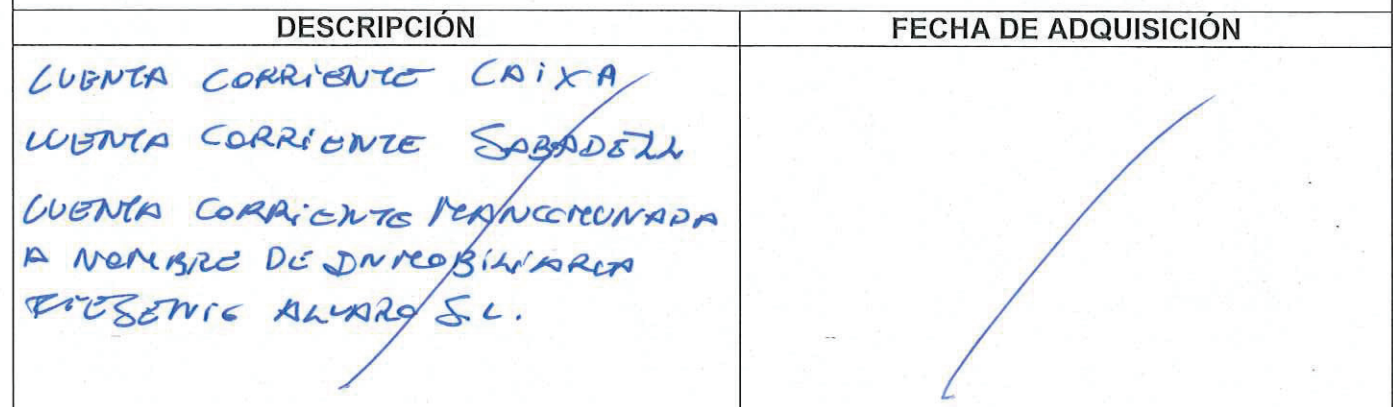 DESCRIPCIÓN
FECHA DE ADQUISICIÓN
CUENTA CORRIENTE CAIXA
CUENTA CORRIENTE SABADELL
CUENTA CORRIENTE MANCOMUNADA
A NOMBRE DE INMOBILIARIA
ALVARO S.L.